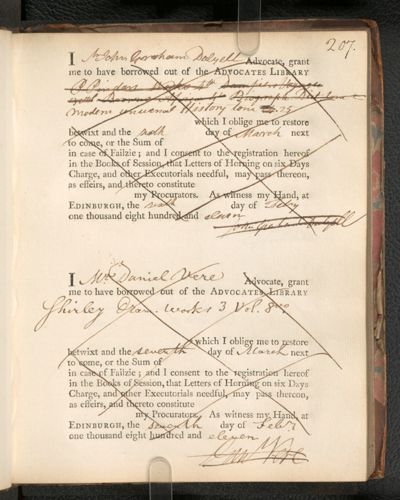 207.
I John Graham Dalyell Advocate, grant
me to have borrowed out of the ADVOCATES LIBRARY
Modern universal History tom 25
which I oblige me to restore
betwixt and the sixth day of March next
to come, or the Sum of
in case of Failzie; and I consent to the registration hereof
in the Books of Session, that Letters of Horning on six Days
Charge, and other Executorials needful, may pass thereon,
as effeirs, and thereto constitute
my Procurators. As witness my Hand, at
EDINBURGH, the sixth day of Feby
one thousand eight hundred and eleven
John Graham Dalyell
I Daniel Vere Advocate, grant
me to have borrowed out of the ADVOCATES LIBRARY
Shirley Dram. Works 3 Vol. 8vo
which I oblige me to restore
betwixt and the seventh day of March next
to come, or the Sum of
in case of Failzie; and I consent to the registration hereof
in the Books of Session, that Letters of Horning on six Days
Charge, and other Executorials needful, may pass thereon,
as effeirs, and thereto constitute
my Procurators. As witness my Hand, at
EDINBURGH, the seventh day of Feby
one thousand eight hundred and eleven
Danl Vere